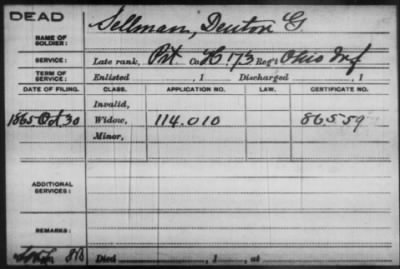 DEAD
NAME OF SOLDIER: Sellman, Denton G
SERVICE: Late rank, Pvt Co H. 173 Reg't Ohio Inf
TERM OF SERVICE: Enlisted , 1 Discharged , 1
DATE OF FILING. CLASS. APPLICATION NO. LAW. CERTIFICATE NO.
Invalid,
1865 Oct 30 Widow, 114.010 86559
Minor,
ADDITIONAL SERVICES:
REMARKS:
Died , 1 , at